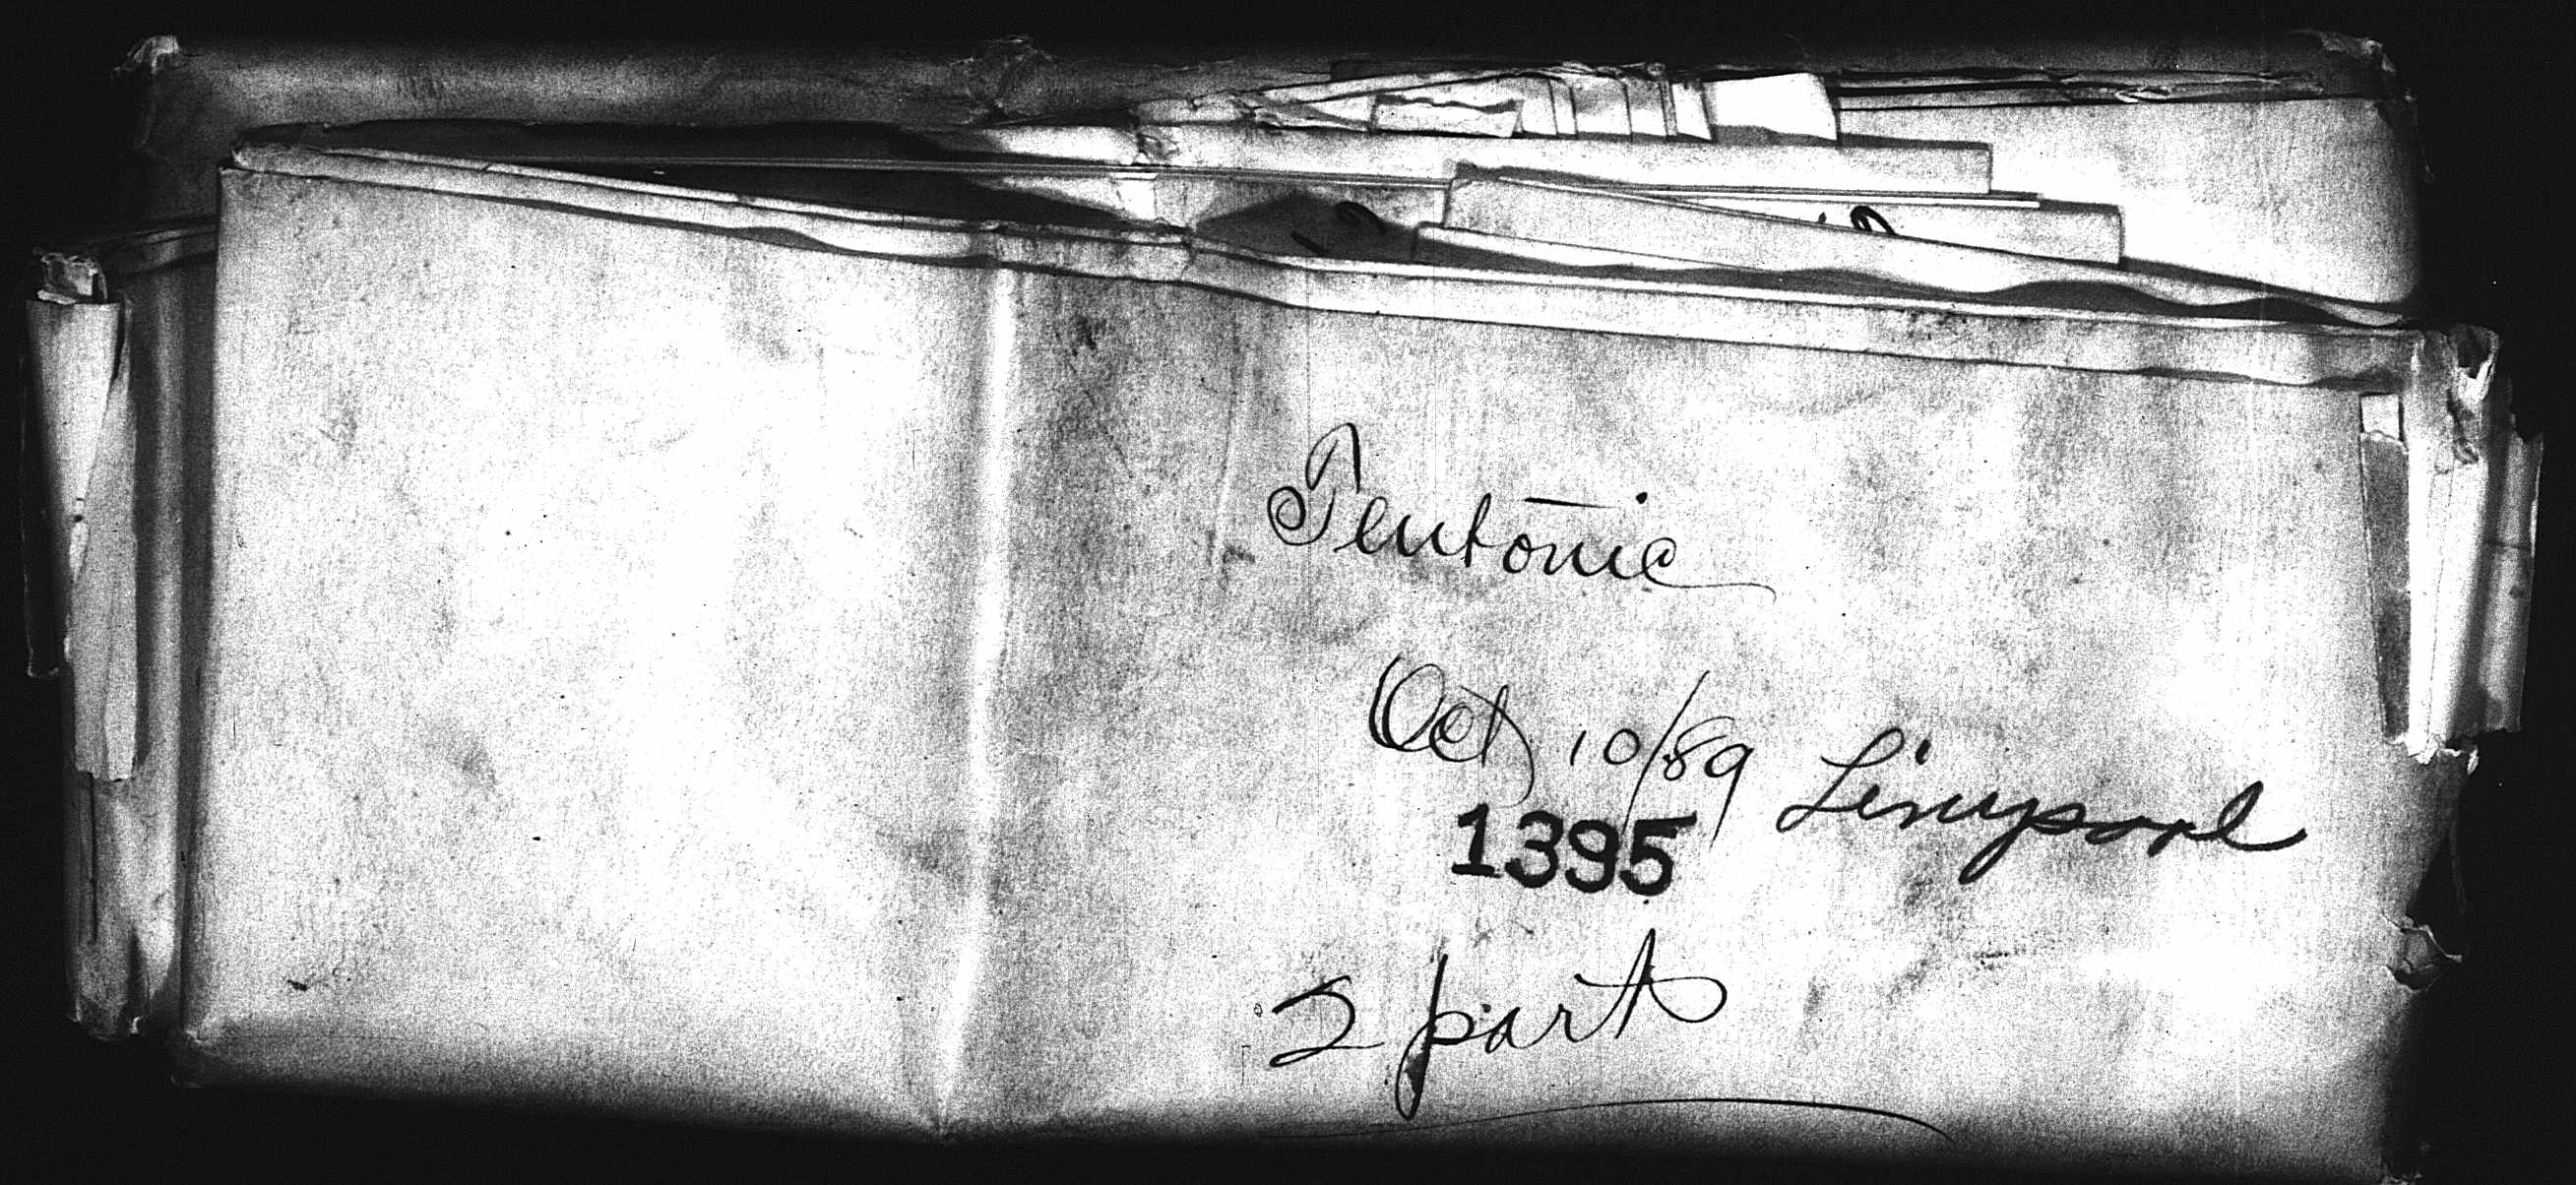 Teutonic
Oct 10/89 Liverpool
1395
2 parts